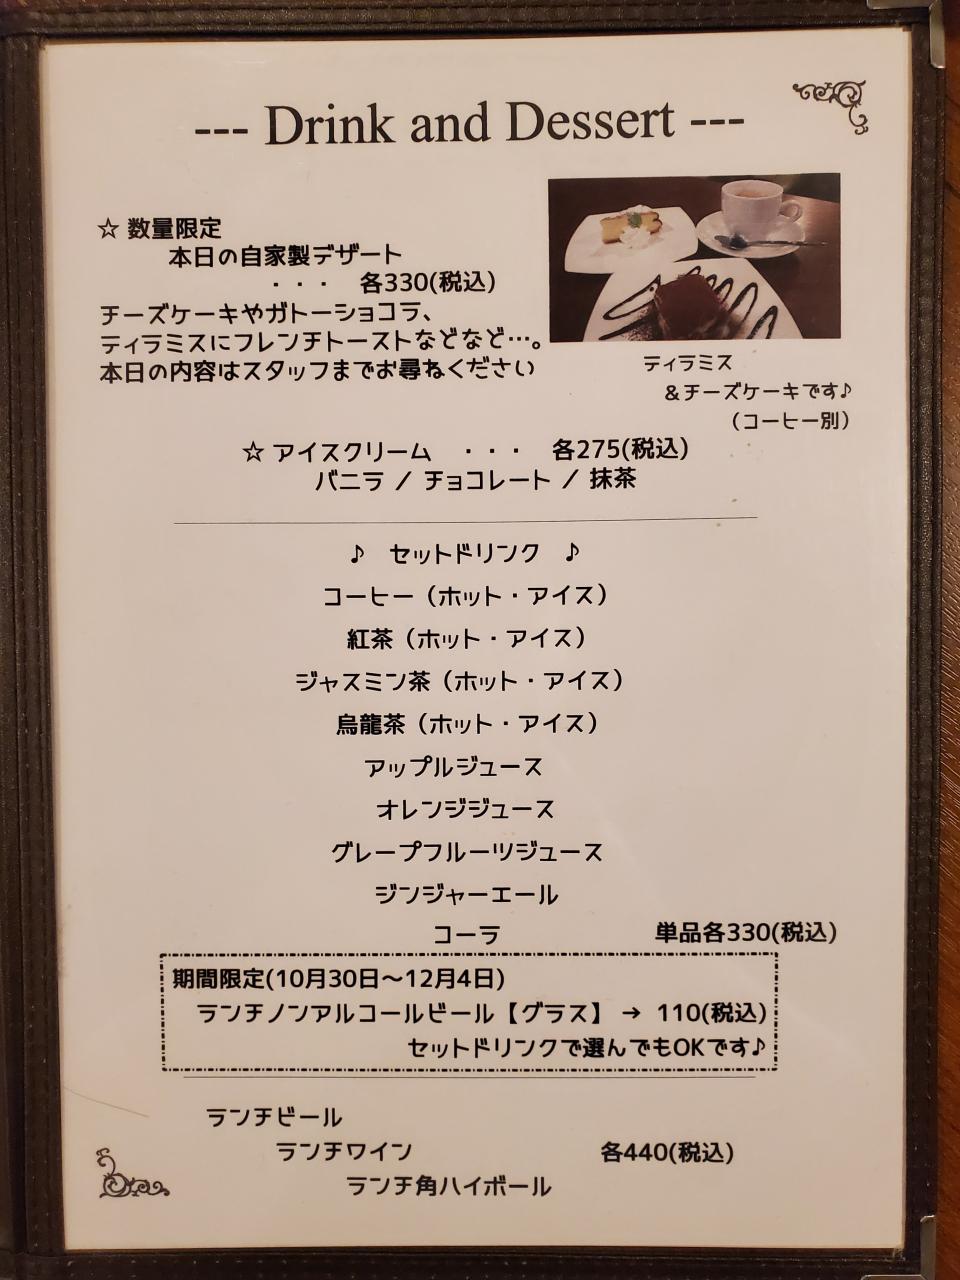 --- Drink and Dessert ---
☆ 数量限定
本日の自家製デザート
・・・ 各330(税込)
チーズケーキやガトーショコラ、
ティラミスにフレンチトーストなどなど…。
本日の内容はスタッフまでお尋ねください
ティラミス
＆チーズケーキです♪
（コーヒー別）
☆ アイスクリーム ・・・ 各275(税込)
バニラ ／ チョコレート ／ 抹茶
♪ セットドリンク ♪
コーヒー（ホット・アイス）
紅茶（ホット・アイス）
ジャスミン茶（ホット・アイス）
烏龍茶（ホット・アイス）
アップルジュース
オレンジジュース
グレープフルーツジュース
ジンジャーエール
コーラ 単品各330(税込)
期間限定(10月30日～12月4日)
ランチノンアルコールビール【グラス】 → 110(税込)
セットドリンクで選んでもOKです♪
ランチビール
ランチワイン 各440(税込)
ランチ角ハイボール